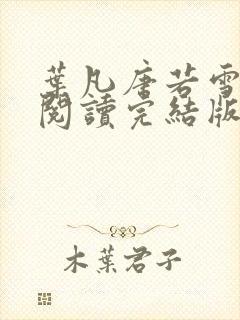 葉凡唐若雪
閱讀完結版
木葉君子